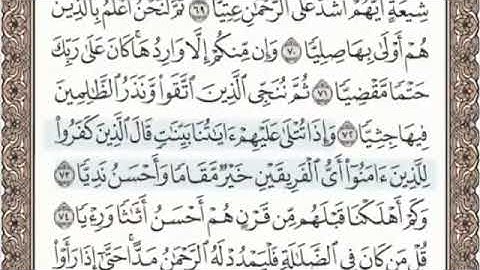 شِيعَةٍ أَيُّهُمْ أَشَدُّ عَلَى ٱلرَّحْمَٰنِ عِتِيًّا ٦٩ ثُمَّ لَنَحْنُ أَعْلَمُ بِٱلَّذِينَ
هُمْ أَوْلَىٰ بِهَا صِلِيًّا ٧٠ وَإِن مِّنكُمْ إِلَّا وَارِدُهَا كَانَ عَلَىٰ رَبِّكَ
حَتْمًا مَّقْضِيًّا ٧١ ثُمَّ نُنَجِّى ٱلَّذِينَ ٱتَّقَوا۟ وَّنَذَرُ ٱلظَّٰلِمِينَ
فِيهَا جِثِيًّا ٧٢ وَإِذَا تُتْلَىٰ عَلَيْهِمْ ءَايَٰتُنَا بَيِّنَٰتٍ قَالَ ٱلَّذِينَ كَفَرُوا۟
لِلَّذِينَ ءَامَنُوٓا۟ أَىُّ ٱلْفَرِيقَيْنِ خَيْرٌ مَّقَامًا وَأَحْسَنُ نَدِيًّا ٧٣
وَكَمْ أَهْلَكْنَا قَبْلَهُم مِّن قَرْنٍ هُمْ أَحْسَنُ أَثَٰثًا وَرِءْيًا ٧٤
قُلْ مَن كَانَ فِى ٱلضَّلَٰلَةِ فَلْيَمْدُدْ لَهُ ٱلرَّحْمَٰنُ مَدًّا حَتَّىٰٓ إِذَا رَأَوْا۟